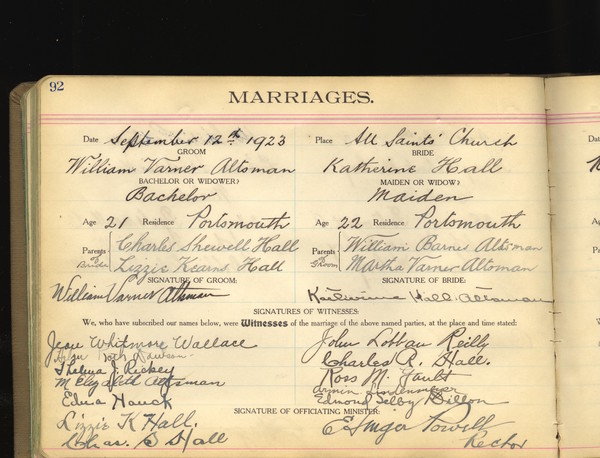 92
MARRIAGES.
Date September 12th 1923 Place All Saints' Church
GROOM BRIDE
William Varner Altsman Katherine Hall
BACHELOR OR WIDOWER? MAIDEN OR WIDOW?
Bachelor Maiden
Age 21 Residence Portsmouth Age 22 Residence Portsmouth
Parents of Bride Charles Shewell Hall Parents of Groom William Barnes Altsman
Lizzie Kearns Hall Martha Varner Altsman
SIGNATURE OF GROOM: SIGNATURE OF BRIDE:
William Varner Altsman Katherine Hall Altsman
SIGNATURES OF WITNESSES:
We, who have subscribed our names below, were Witnesses of the marriage of the above named parties, at the place and time stated:
Jean Whitmore Wallace John Lobban Reilly
Charles R. Hall.
Thelma J. Rickey Ross M. Gault
M Elizabeth Altsman Armin
Edna Hauck Edmond Selby Dillon
SIGNATURE OF OFFICIATING MINISTER:
Lizzie K Hall. E Ainger Powell
Chas. S Hall Rector